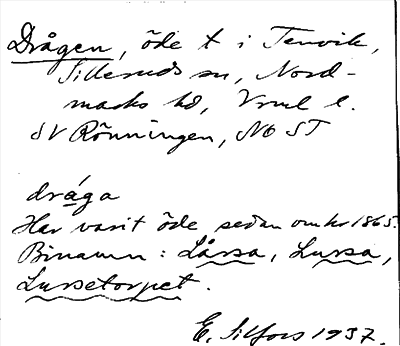 Drågen, öde t i Tenvik,
Silleruds sn, Nord-
marks hd, Vrml l.
SV Rönningen, NO ST
dråga
Har varit öde sedan omkr 1865.
Binamn: Låssa, Lussa,
Lussetorpet.
E. Silfors 1937.